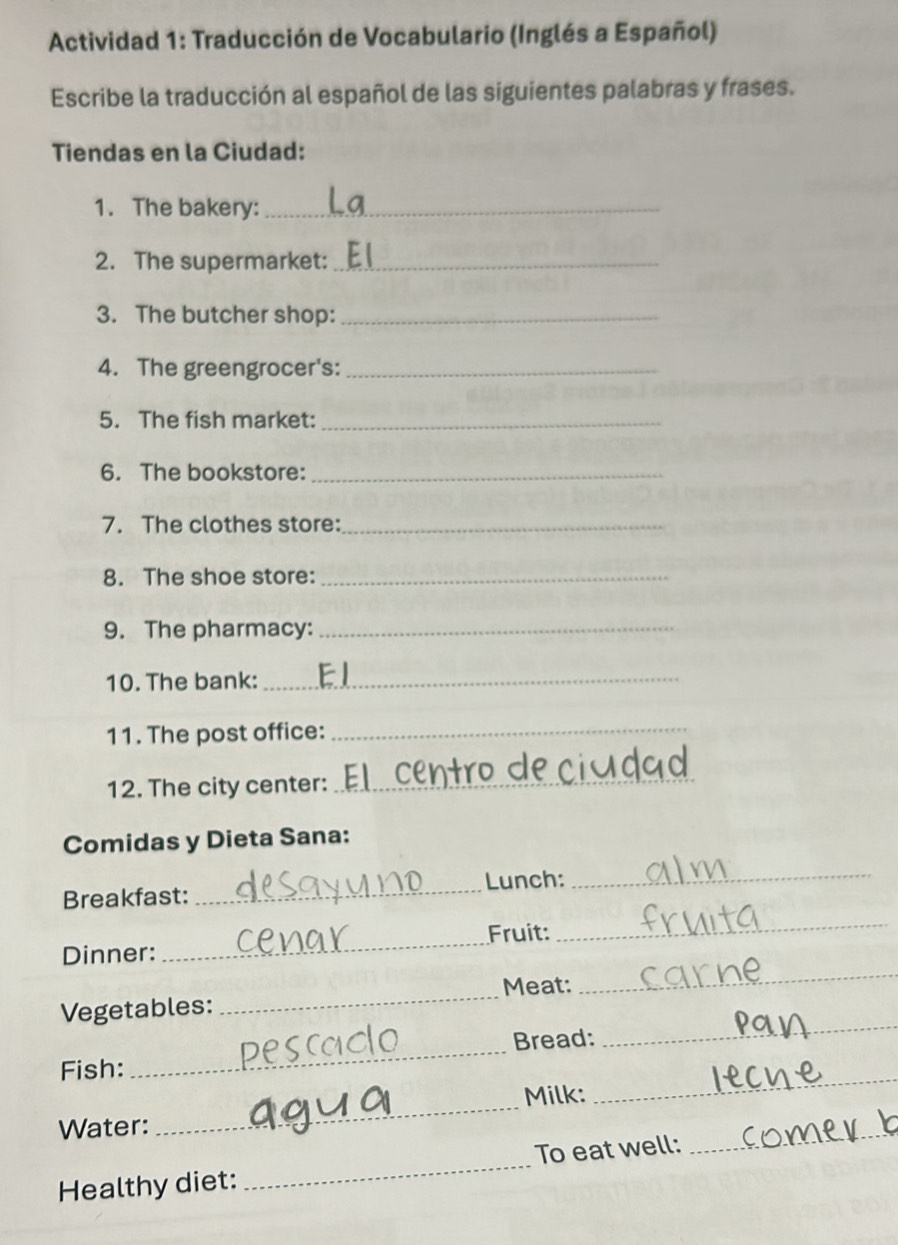 Actividad 1: Traducción de Vocabulario (Inglés a Español)
Escribe la traducción al español de las siguientes palabras y frases.
Tiendas en la Ciudad:
1. The bakery: La
2. The supermarket: El
3. The butcher shop:
4. The greengrocer's:
5. The fish market:
6. The bookstore:
7. The clothes store:
8. The shoe store:
9. The pharmacy:
10. The bank: El
11. The post office:
12. The city center: El centro de ciudad
Comidas y Dieta Sana:
Breakfast: desayuno Lunch: alm
Dinner: cenar Fruit: fruita
Vegetables: Meat: carne
Fish: pescado Bread: pan
Water: agua Milk: leche
Healthy diet: To eat well: comer b